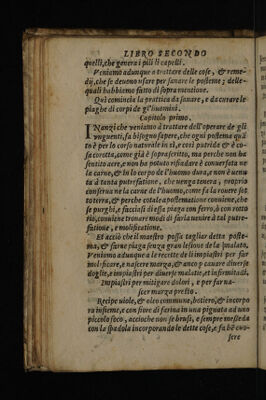 LIBRO SECONDO
quelli, che genera i pili li capelli.
Veniamo adunque a trattare delle cose, & reme-
dij, che se deuono usare per sanare le posteme; delle-
quali habbiamo fatto di sopra mentione.
Quì comincia la prattica da sanare, e da curare le
piaghe di corpi de gl'huomini.
Capitolo primo.
INanzi che veniamo à trattare dell'operare de gli
unguenti, fa bisogno sapere, che ogni postema quã
to è per lo corso naturale in sì, e così putrida & è co-
sa corotta, come è soprascritto, ma perche non ha
sentito aere, e non ha potuto risudare è conuersata ne
la carne, & in lo corpo de l'huomo dura, e non è uenu
ta à tenta putrefatione, che uenga tenera, propria
conserua ne la carne de l'huomo, come fa la rouere sot
to terra, & perche cotale apostemation conuiene, che
se purghi, e facciasi di essa piaga con ferro, ò con rotto
rio, conuiene trouare modi di farla uenire à tal putre-
fatione, e molificatione.
Et acciò che il maestro possa tagliar detta poste-
ma, & farne piaga senza gran lesione de la malato,
Veniamo adunque a le recette de li impiastri per far
molificare, e nascere marza, & anco p cauare diuerse
doglie, e impiastri per diuerse malatie, et infirmitadi.
Impiastri per mitigare dolori, e per far na-
scer marza presto.
Recipe uiole, & oleo commune, botiero, & incorpo
ra insieme, e con fiore di farina in una pignata ad uno
piccolo foco, accioche non se brusi, e sempre messeda
con la spadola incorporando le dette cose, e fa bẽ cuo-
sere